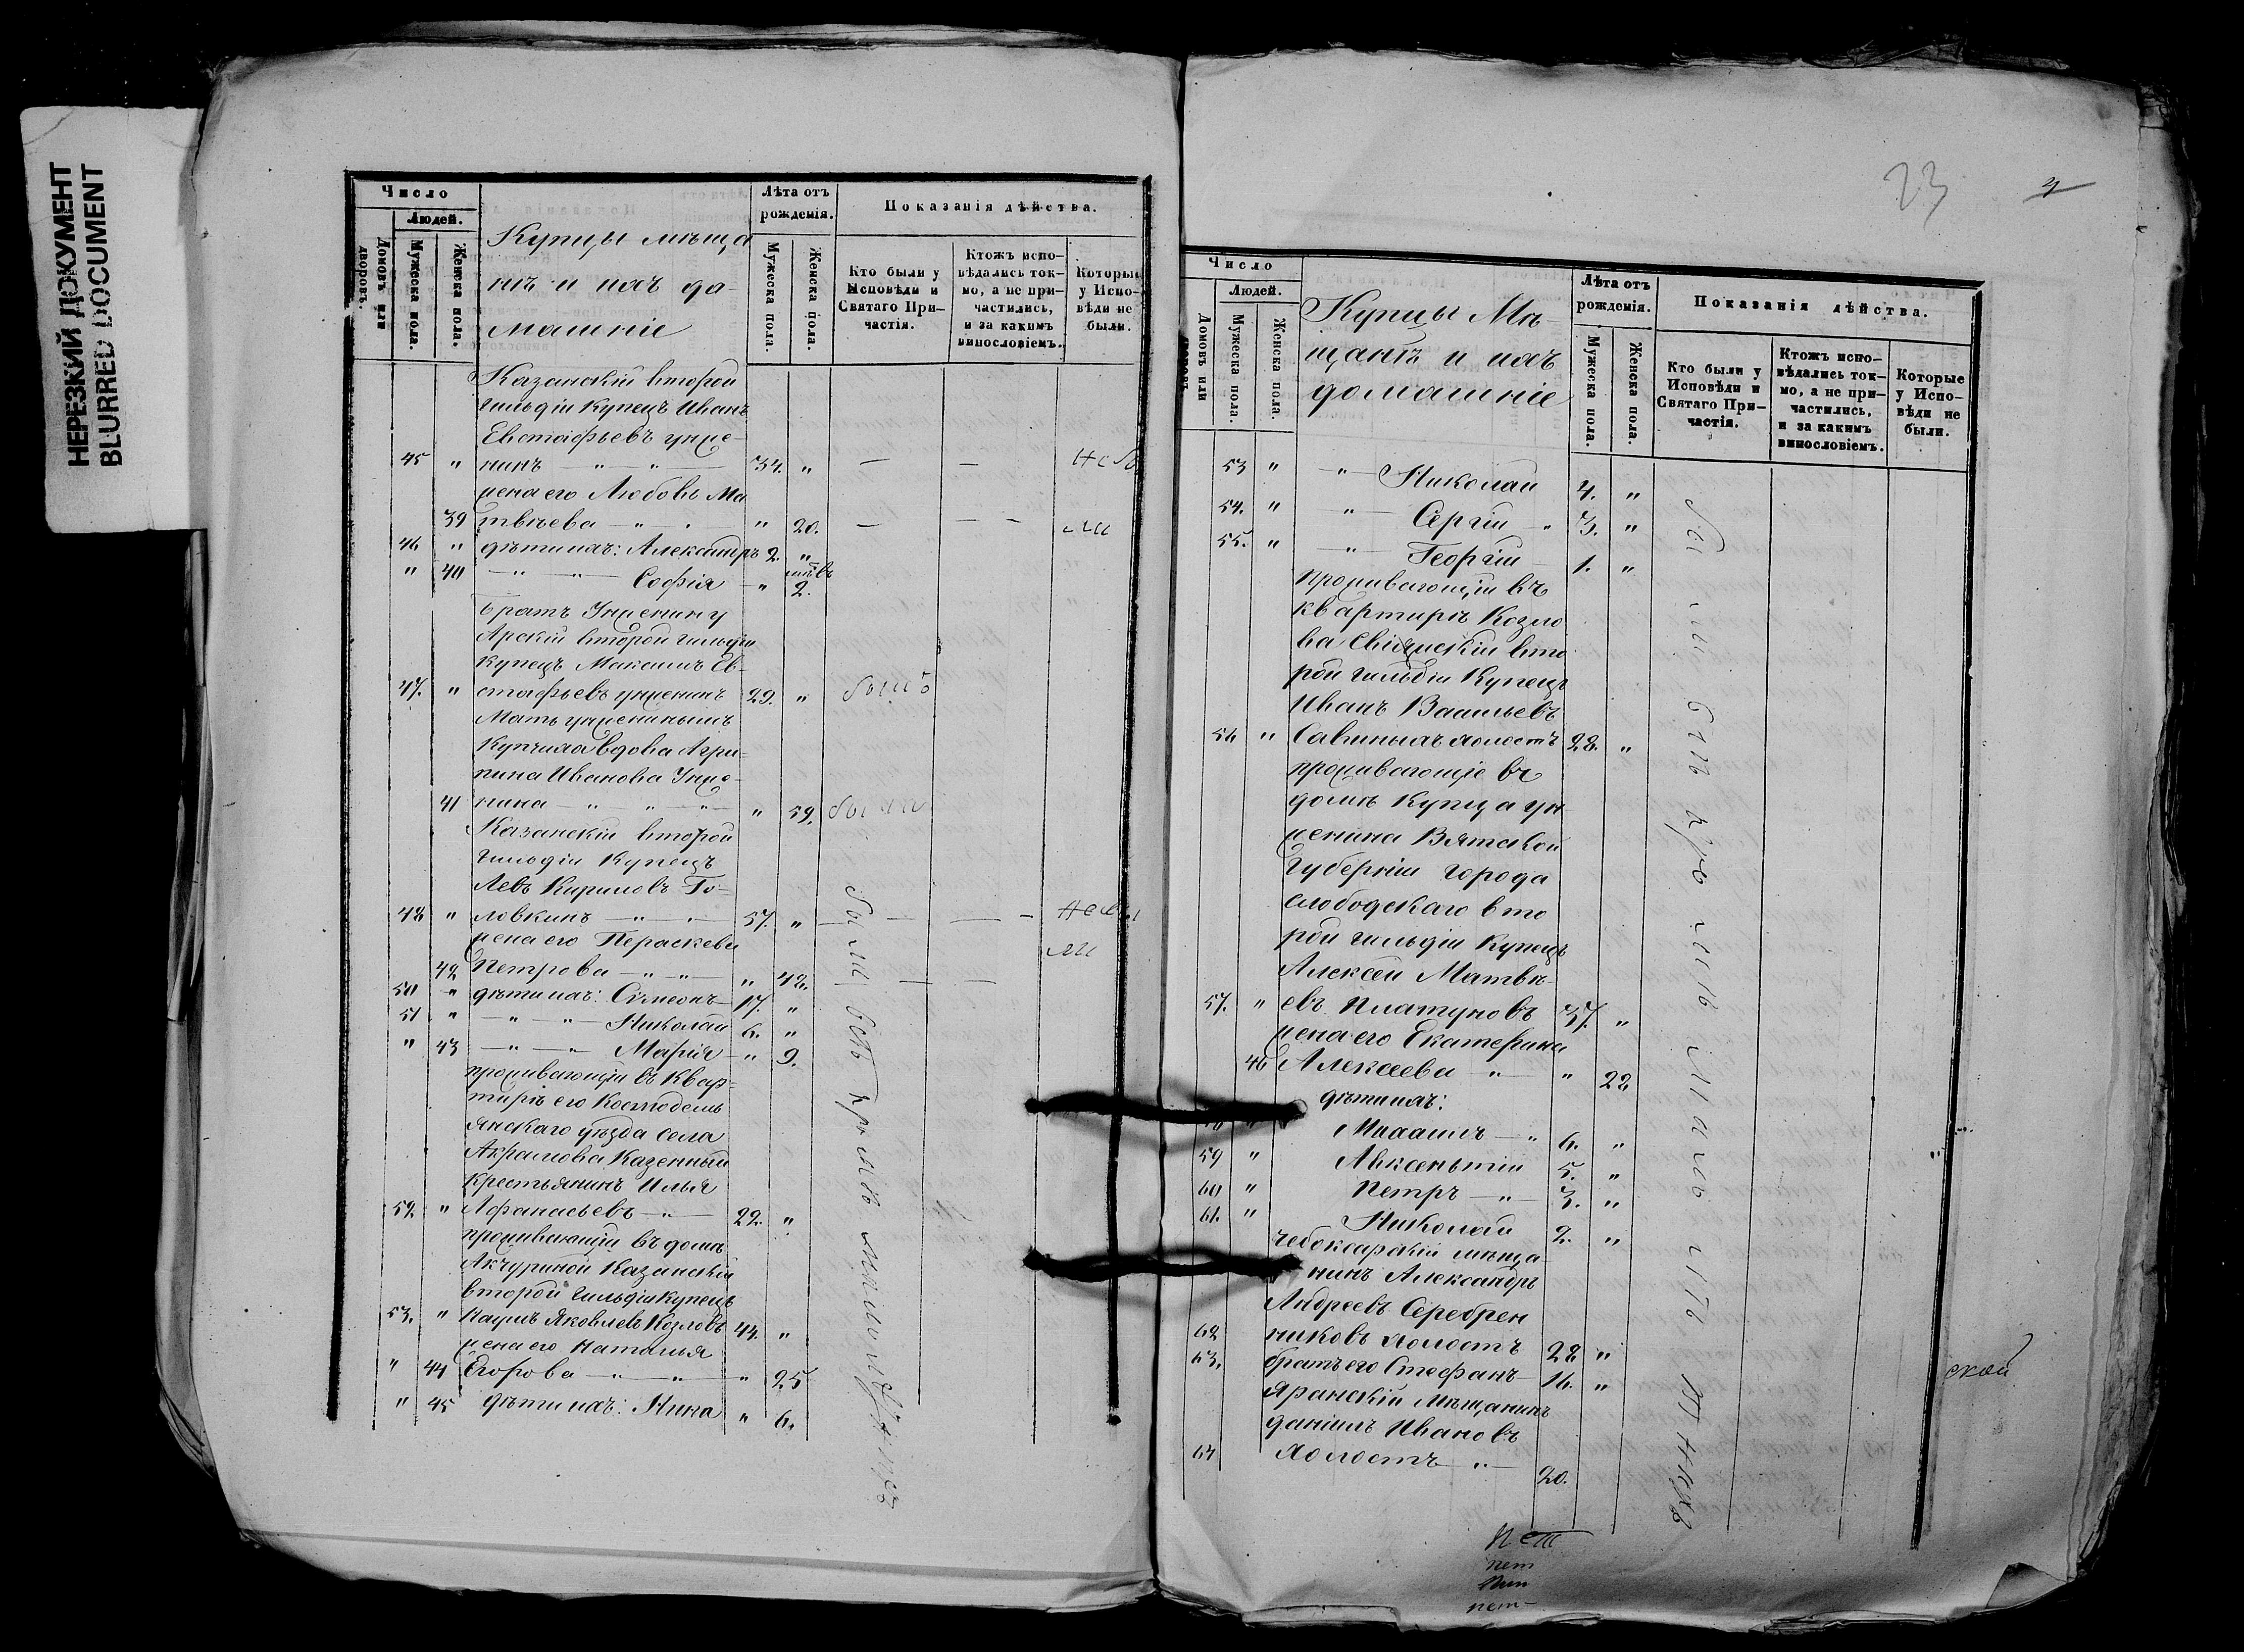 НЕРЕЗКИЙ ДОКУМЕНТ
BLURRED DOCUMENT
Число
Людей.
Домовъ или дворовъ.
Мужеска пола.
Женска пола.
Купцы мѣща
нѣ и ихъ до-
машніе
Лѣта отъ рожденія.
Мужеска пола.
Женска пола.
Показанія дѣйства.
Кто были у Исповѣди и Святаго При-частія.
Ктожъ испо-вѣдались ток-мо, а не при-частились, и за какимъ винословіемъ.
Которые у Испо-вѣди не были.
Казанскій второй
гильдіи Купецъ Иванъ
Евстафьевъ унже-
45 " нинъ — " — " — 34. " — — не бы
жена его Любовь Ма
39 твѣева — " — " 20. — — — ли
46 " дѣти ихъ: Александръ 2. "
" 40 — " — " — Софія — " 2.
братъ Унженину
Арскій второй гильдіи
купецъ Максимъ Ев-
47. " стафьевъ унженинъ 29. " былъ
Мать унжениныхъ
Купчиха вдова Агри-
пина Иванова Унже-
41 нина — " — " — " — " 59. была
Казанскій второй
гильдіи Купецъ
Левъ Кириловъ Го-
48 " ловкинъ — " — 57. " — — — не бы
жена его Пераскева
ли
42 Петрова — " — " — " 42. — —
50 " дѣти ихъ: Симеонъ — 17. "
51 " — " — " — Николай 6. "
" 43 — " — " Марія — " 9.
проживающій въ Квар-
тирѣ его Космодемь
янскаго уѣзда села
Акрамова Казенный
Крестьянинъ Илья
52. " Афанасьевъ — " — 22. "
проживающій въ домѣ
Акчуриной Казанскій
второй гильдіи купецъ
53. " Наумъ Яковлевъ Козловъ 44. "
жена его Наталья
" 44 Егорова — " — " — " 25
" 45 дѣти ихъ: Нина " 6.
были
23
Число
Людей.
Домовъ или дворовъ.
Мужеска пола.
Женска пола.
Купцы Мѣ
щанѣ и ихъ
домашніе
Лѣта отъ рожденія.
Мужеска пола.
Женска пола.
Показанія дѣйства.
Кто были у Исповѣди и Святаго При-частія.
Ктожъ испо-вѣдались ток-мо, а не при-частились, и за какимъ винословіемъ.
Которые у Испо-вѣди не были.
53 " — " — Николай 4. "
54. " " — Сергій — " 3. "
55. " — " — Георгій — 1. "
проживающій въ
квартирѣ Козло
ва Свіяжскій вто
рой гильдіи Купецъ
Иванъ Васильевъ
56 " Савиныхъ холостъ 28. "
проживающіе въ
домѣ Купца ун
женина Вятской
Губерніи города
слободскаго вто
рой гильдіи купецъ
Алексей Матвѣ-
57. " евъ Платуновъ 37. "
жена его Екатерина
46 Алексеева — " — " 22
дѣти ихъ:
" Михаилъ — " 6. "
59 " Авксеньтій 5. "
60 " Петръ — " — 3. "
61. " Николай 2. "
чебоксарскій мѣща
нинъ Александръ
Андреевъ Серебрен
62 никовъ холостъ 28 "
63. братъ его Стефанъ — 16. "
Яранскій Мѣщанинъ
даніилъ Ивановъ
64 холостъ — " — 20.
ской
нет
нет
нет-